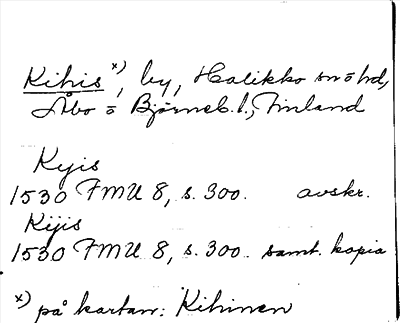 Kihis x), by, Halikko sn o hd,
Åbo o Björneb. l., Finland
Kyis
1530 FMU 8, s. 300. avskr.
Kijis
1530 FMU 8, s. 300. samt. kopia
x) på kartan: Kihinen